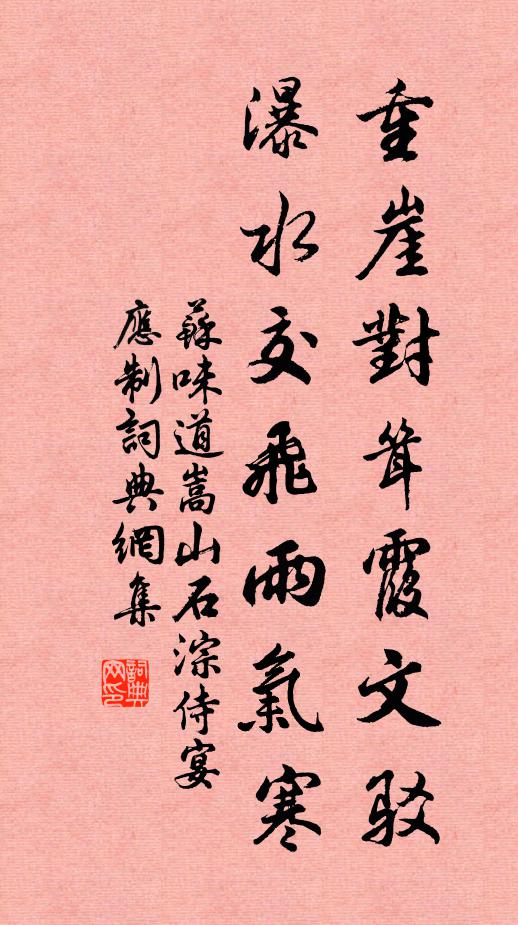 重崖對聳霞文駁
瀑水交飛雨氣寒
蘇味道嵩山石淙侍宴
應制詞典網集
詞典网印